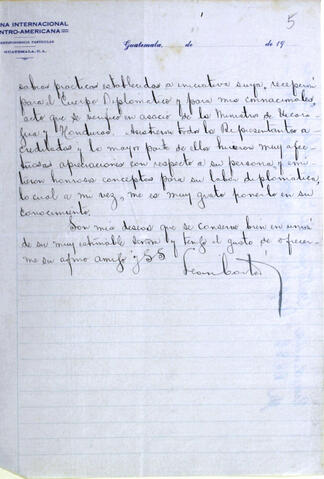 NA INTERNACIONAL
NTRO-AMERICANA
RRESPONDENCIA PARTICULAR
GUATEMALA, C.A.
5
Guatemala, de de 19
sabias practicas establecidas a iniciativa suya, recepción
para el Cuerpo Diplomatico y para mis connacionales,
acto que se verifico en asocio de los Ministros de Nicara-
gua y Honduras. Asistieron todos los Representantes a-
creditados y la mayor parte de ellos hicieron muy afec-
tuosas apreciaciones con respecto a su persona y emi-
tieron honrosos conceptos para su labor diplomatica,
lo cual a mi vez, me es muy gusto ponerlo en su
conocimiento.
Son mis deseos que se conserve bien en unión
de su muy estimable señora y tengo el gusto de ofrecer-
me su afmo amigo y SS